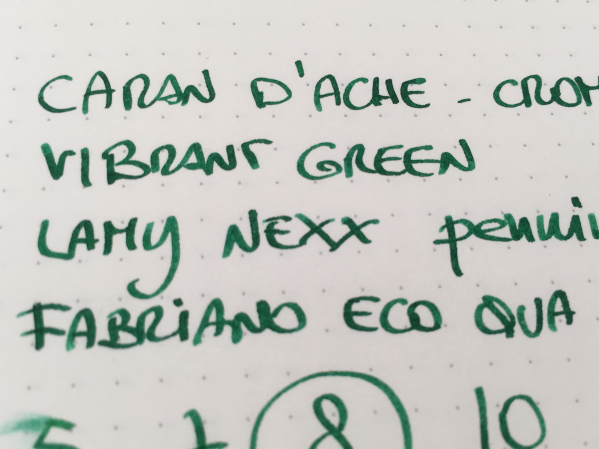 CARAN D'ACHE - CROM
VIBRANT GREEN
LAMY NEXX penni
FABRIANO ECO QUA
8 10